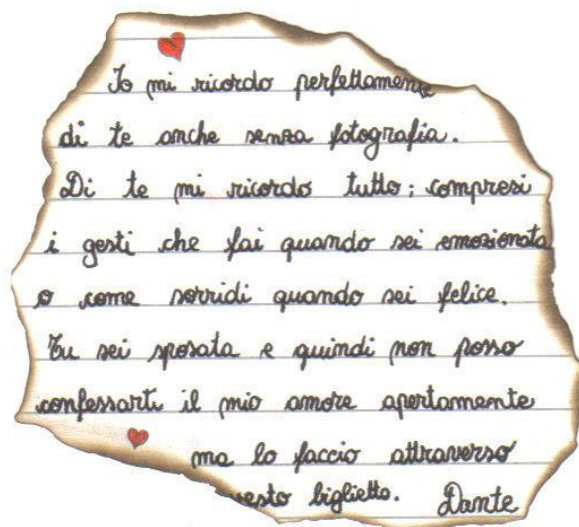 Io mi ricordo perfettamente
di te anche senza fotografia.
Di te mi ricordo tutto; compresi
i gesti che fai quando sei emozionata
o come sorridi quando sei felice.
Tu sei sposata e quindi non posso
confessarti il mio amore apertamente
ma lo faccio attraverso
uesto biglietto. Dante